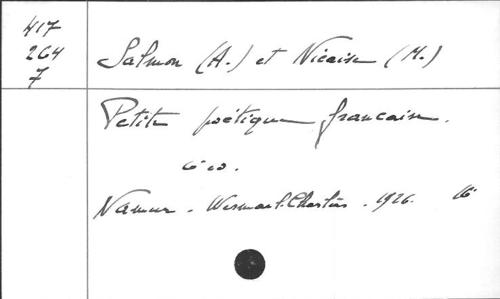 417
264
7
Salmon (A.) et Nicaise (M.)
Petite poétique francaise.
6e éd.
Namur. Wesmael-Charlier. 1926. 16°